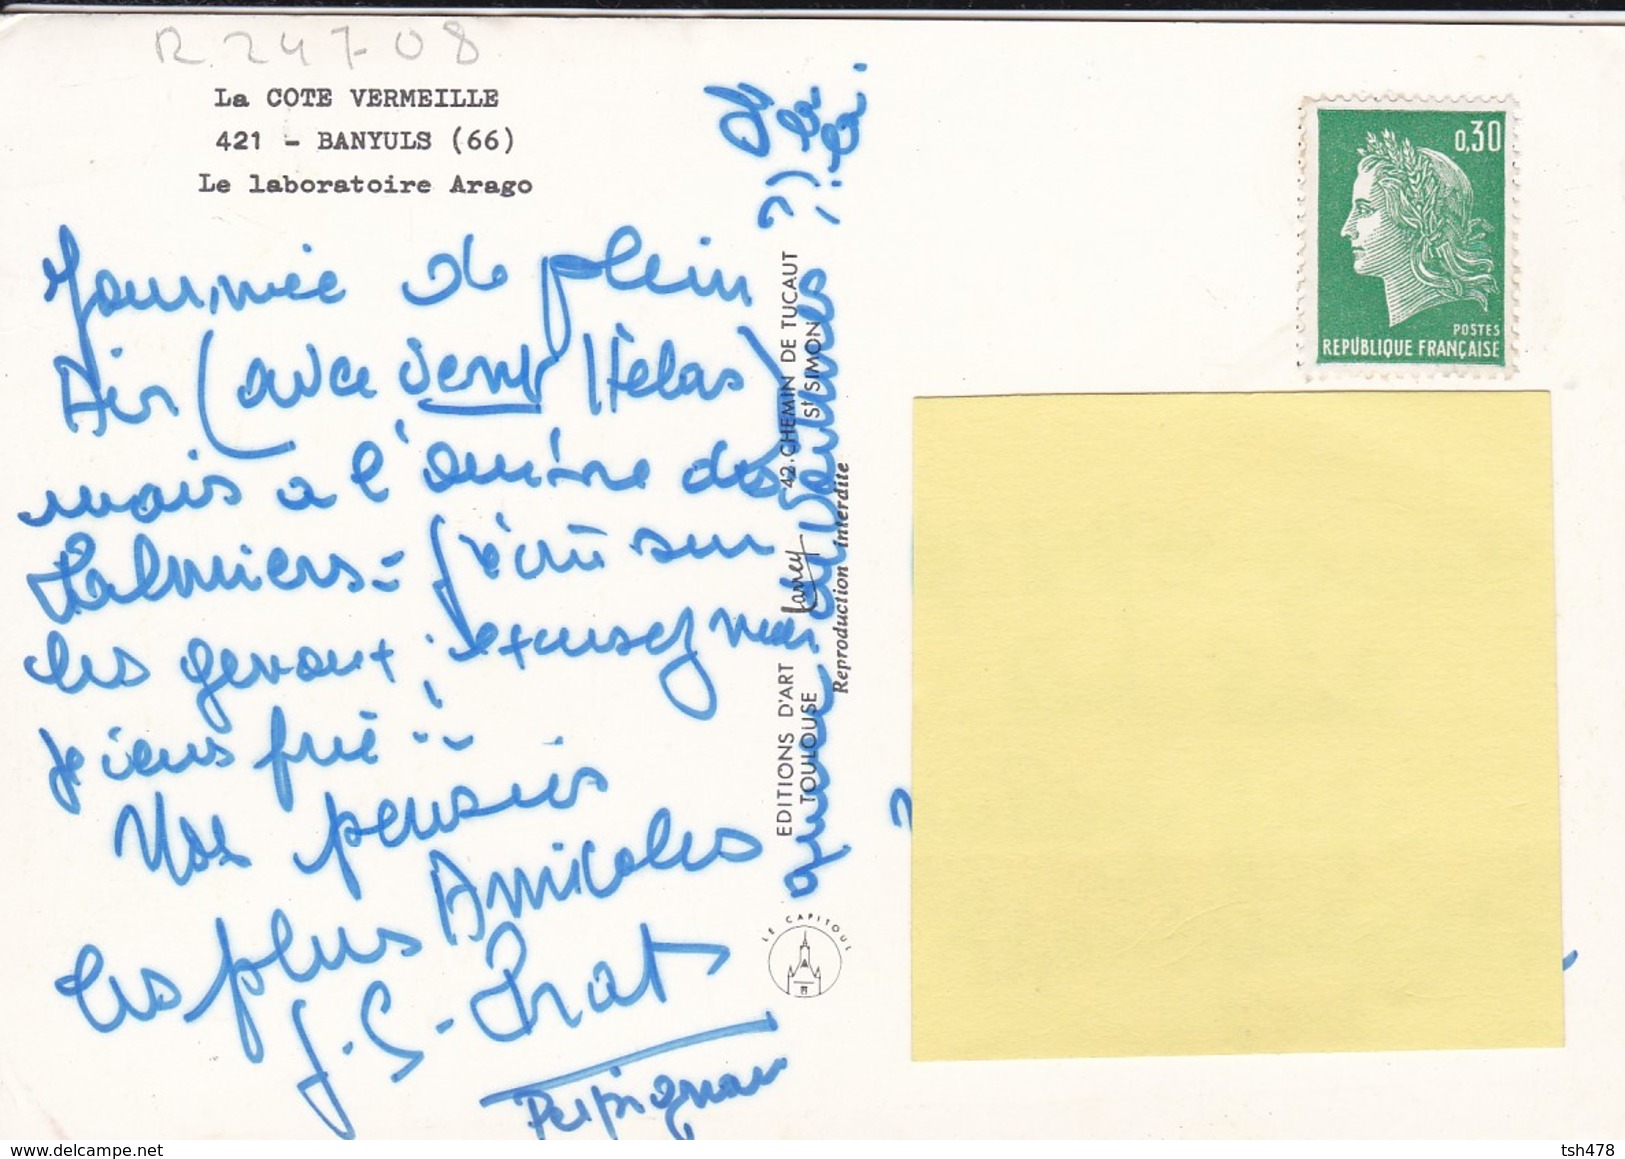 R.247-08
La COTE VERMEILLE
421 - BANYULS (66)
Le laboratoire Arago
Journée de plein
Air (avec vent Hélas)
mais a l'ombre des
Palmiers = J'écris sur
les genoux. excusez moi
je viens
Nos pensées
Amicales
les plus
J. S.
Perpignan
EDITIONS D'ART Larrey 42.CHEMIN DE TUCAUT
TOULOUSE St SIMON
Reproduction interdite
LE CAPITOUL
0,30
POSTES
REPUBLIQUE FRANÇAISE
tsh478